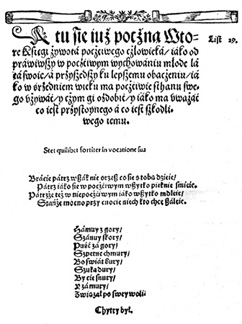 A tu się iuż poczną Wto-
re Kśięgi żywota poczćiwego człowieka / iako od
prawiwszy w poczćiwym wychowaniu młode la
ta swoie / á przyszedszy ku lepszemu obaczeniu / iá
ko w średniem wieku ma poczćiwie sthanu swe-
go vżywáć / y czym gi osdobić / y iáko ma vważáć
co iest przystoynego á co iest szkodli-
wego temu.
List 29.
Stet quilibet fortiter in vocatione sua
Bracie pátrz wszák nie orzesz co sie s tobą dzieie /
Pátrz iáko sie w poczćiwym wszytko pięknie śmieie.
Pátrzże też w niepoczćiwym iáko wszytko mdleie /
Stańże mocno przy cnocie niech kto chce száleie.
Hámuy z gory /
Szánuy skory /
Puść zá gory /
Szpetne chmury /
Bo świát bury /
Szuka dury /
By cie snury /
Y zámury /
Związał po swey woli
Chytry był.